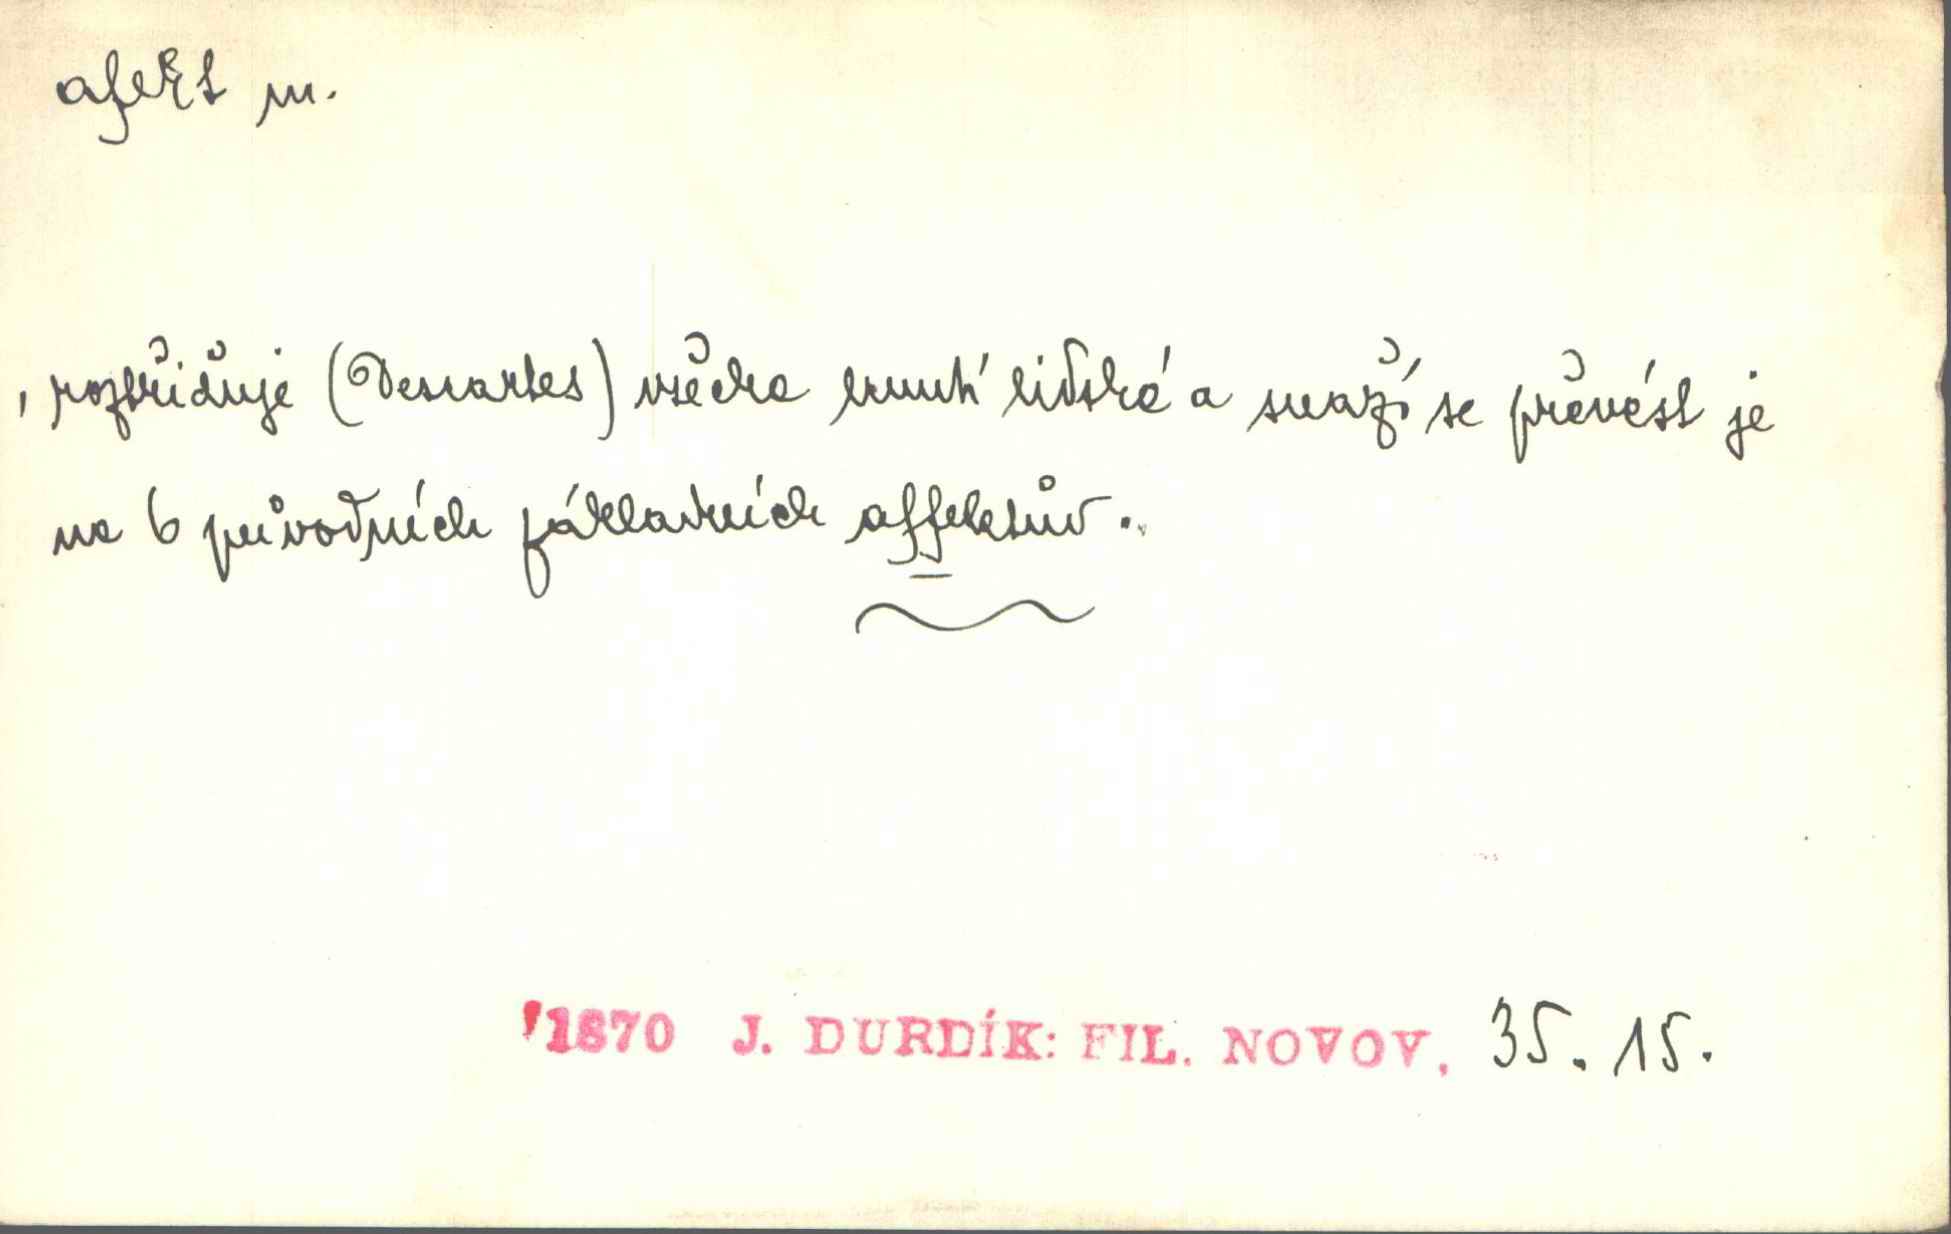 afekt m.
, roztřiďuje (Descartes) všecka hnutí lidská a snaží se převést je
na 6 původních základních affektův.
1870 J. DURDÍK: FIL. NOVOV. 35. 15.